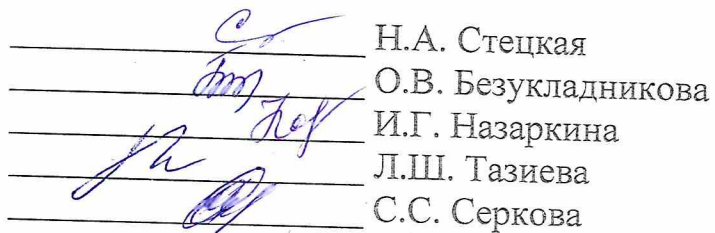 Н.А. Стецкая
О.В. Безукладникова
И.Г. Назаркина
Л.Ш. Тазиева
С.С. Серкова